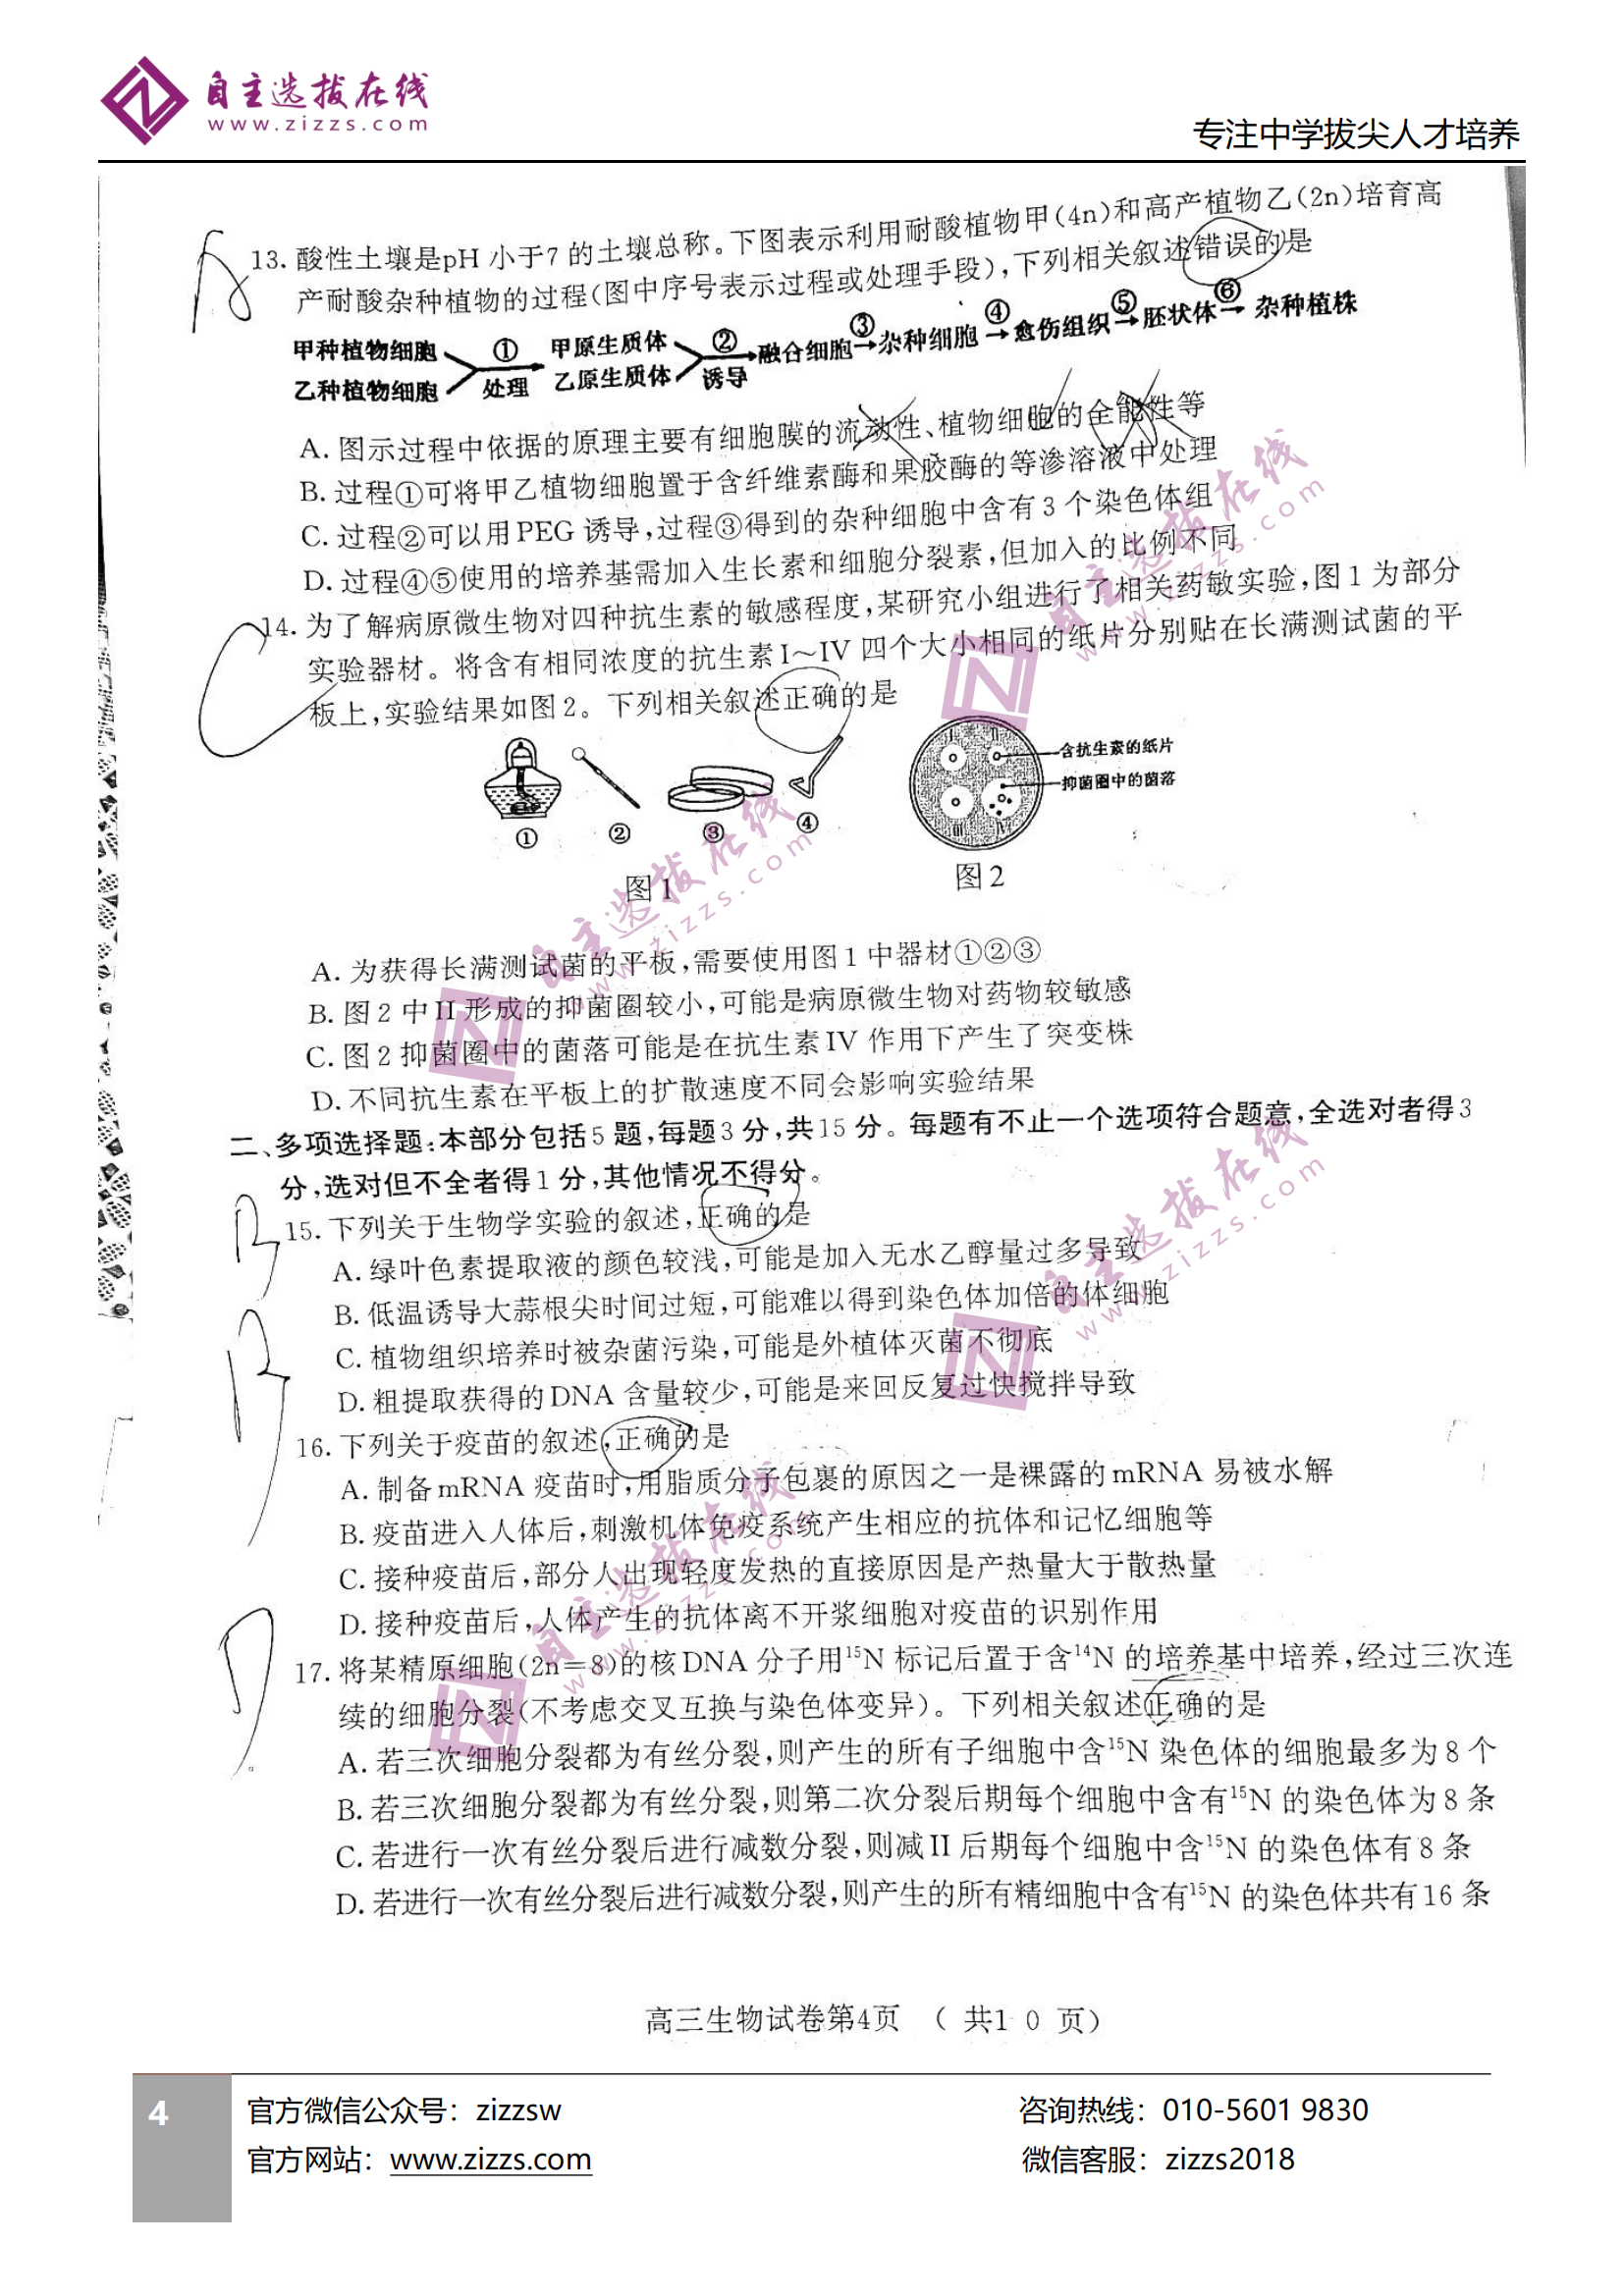 自主选拔在线
www.zizzs.com
专注中学拔尖人才培养
A
13. 酸性土壤是pH 小于7 的土壤总称。下图表示利用耐酸植物甲(4n)和高产植物乙(2n)培育高
产耐酸杂种植物的过程(图中序号表示过程或处理手段),下列相关叙述错误的是
甲种植物细胞 ① 甲原生质体 ② 融合细胞 ③ 杂种细胞 ④ 愈伤组织 ⑤ 胚状体 ⑥ 杂种植株
乙种植物细胞 处理 乙原生质体 诱导
A. 图示过程中依据的原理主要有细胞膜的流动性、植物细胞的全能性等
B. 过程①可将甲乙植物细胞置于含纤维素酶和果胶酶的等渗溶液中处理
C. 过程②可以用PEG 诱导,过程③得到的杂种细胞中含有3 个染色体组
D. 过程④⑤使用的培养基需加入生长素和细胞分裂素,但加入的比例不同
C
14. 为了解病原微生物对四种抗生素的敏感程度,某研究小组进行了相关药敏实验,图1 为部分
实验器材。将含有相同浓度的抗生素I～IV 四个大小相同的纸片分别贴在长满测试菌的平
板上,实验结果如图2。下列相关叙述正确的是
I II
含抗生素的纸片
抑菌圈中的菌落
III IV
① ② ③ ④
图1 图2
A. 为获得长满测试菌的平板,需要使用图1 中器材①②③
B. 图2 中II 形成的抑菌圈较小,可能是病原微生物对药物较敏感
C. 图2 抑菌圈中的菌落可能是在抗生素IV 作用下产生了突变株
D. 不同抗生素在平板上的扩散速度不同会影响实验结果
二、多项选择题:本部分包括5 题,每题3 分,共15 分。每题有不止一个选项符合题意,全选对者得3
分,选对但不全者得1 分,其他情况不得分。
B
15. 下列关于生物学实验的叙述,正确的是
A. 绿叶色素提取液的颜色较浅,可能是加入无水乙醇量过多导致
B. 低温诱导大蒜根尖时间过短,可能难以得到染色体加倍的体细胞
C. 植物组织培养时被杂菌污染,可能是外植体灭菌不彻底
D. 粗提取获得的DNA 含量较少,可能是来回反复过快搅拌导致
B
16. 下列关于疫苗的叙述,正确的是
A. 制备mRNA 疫苗时,用脂质分子包裹的原因之一是裸露的mRNA 易被水解
B. 疫苗进入人体后,刺激机体免疫系统产生相应的抗体和记忆细胞等
C. 接种疫苗后,部分人出现轻度发热的直接原因是产热量大于散热量
D. 接种疫苗后,人体产生的抗体离不开浆细胞对疫苗的识别作用
D
17. 将某精原细胞(2n=8)的核DNA 分子用¹⁵N 标记后置于含¹⁴N 的培养基中培养,经过三次连
续的细胞分裂(不考虑交叉互换与染色体变异)。下列相关叙述正确的是
A. 若三次细胞分裂都为有丝分裂,则产生的所有子细胞中含¹⁵N 染色体的细胞最多为8 个
B. 若三次细胞分裂都为有丝分裂,则第二次分裂后期每个细胞中含有¹⁵N 的染色体为8 条
C. 若进行一次有丝分裂后进行减数分裂,则减II 后期每个细胞中含¹⁵N 的染色体有8 条
D. 若进行一次有丝分裂后进行减数分裂,则产生的所有精细胞中含有¹⁵N 的染色体共有16 条
高三生物试卷第4页 ( 共1 0 页)
4
官方微信公众号：zizzsw 咨询热线：010-5601 9830
官方网站：www.zizzs.com 微信客服：zizzs2018